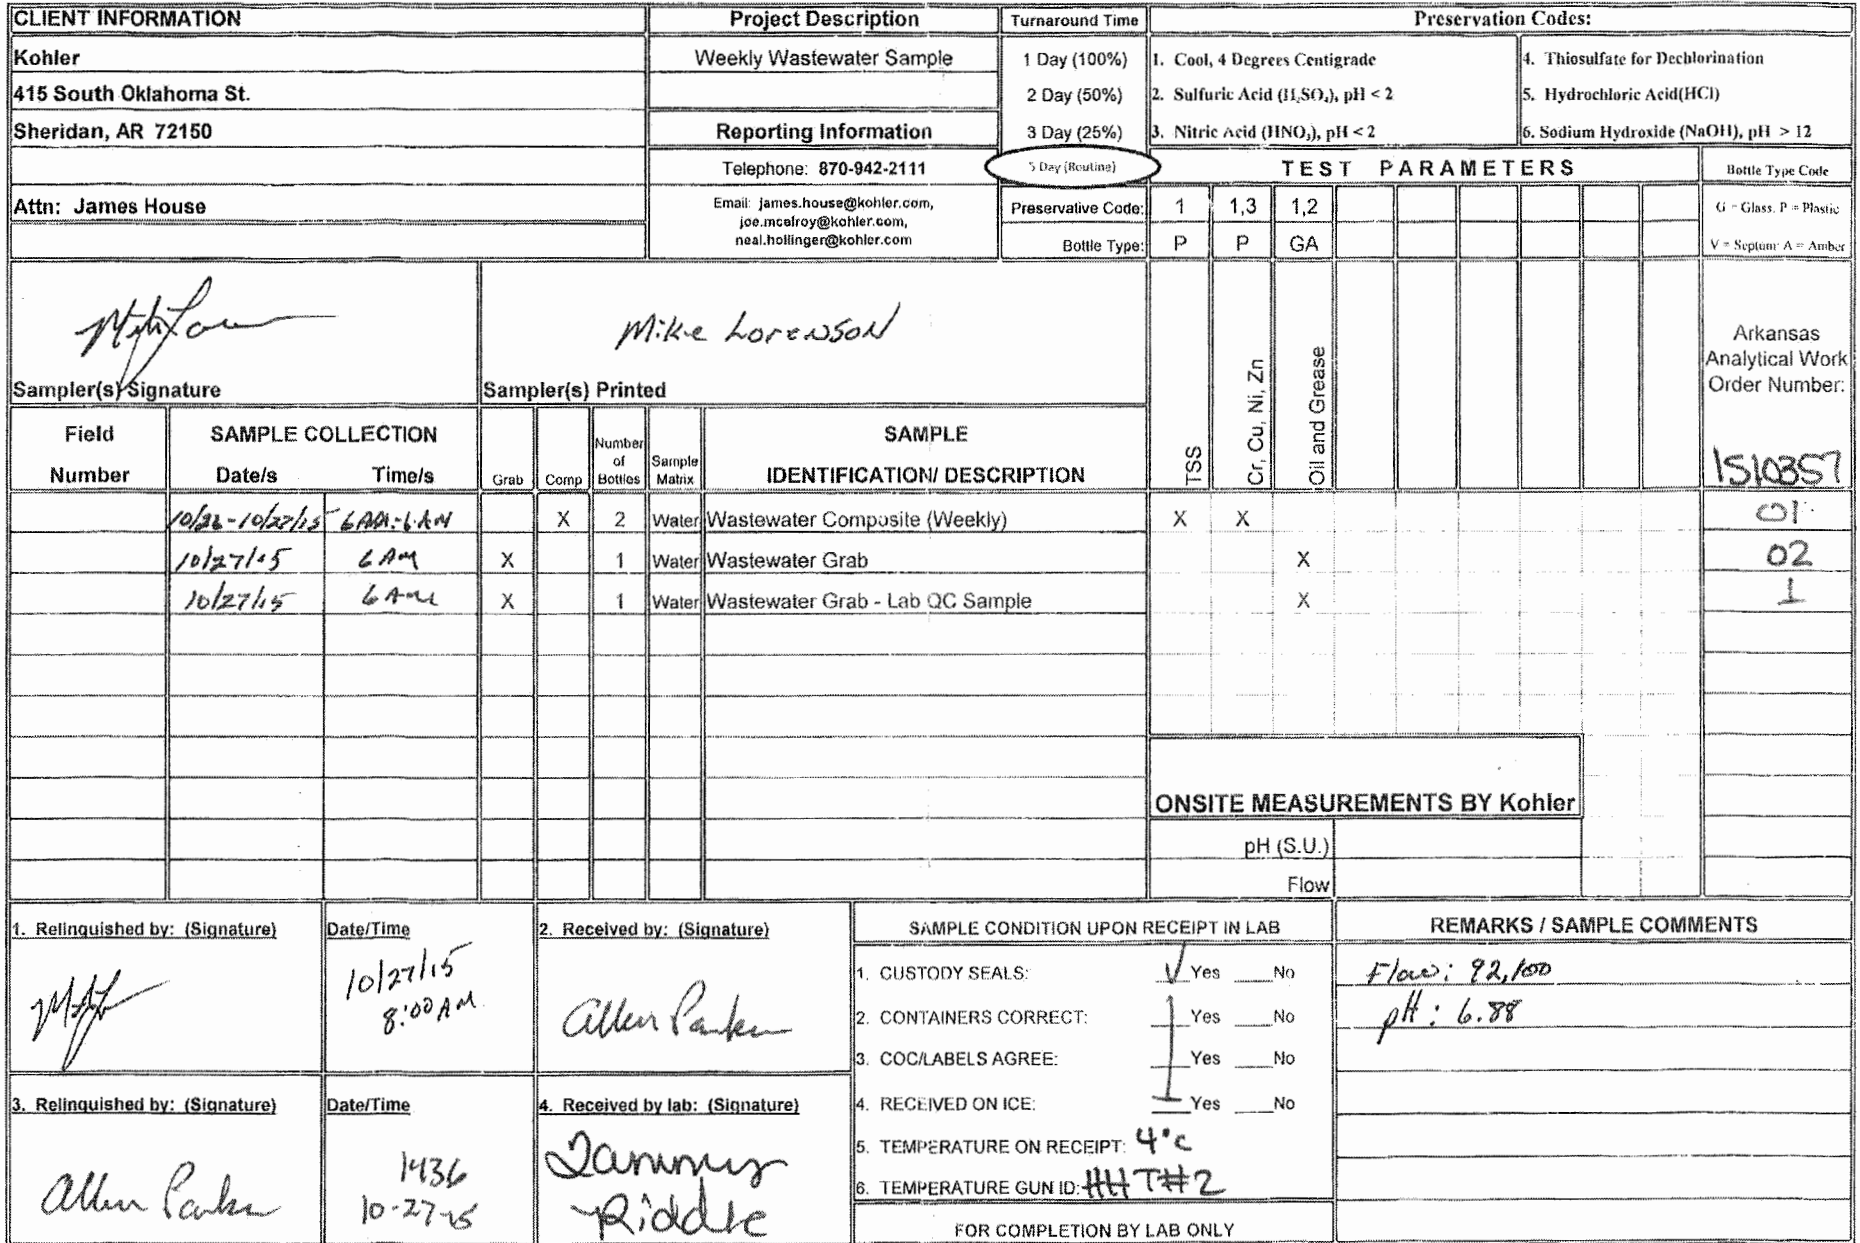 CLIENT INFORMATION
Kohler
415 South Oklahoma St.
Sheridan, AR 72150
Attn: James House
Project Description
Weekly Wastewater Sample
Reporting Information
Telephone: 870-942-2111
Email: james.house@kohler.com,
joe.mcelroy@kohler.com,
neal.hollinger@kohler.com
Turnaround Time
1 Day (100%)
2 Day (50%)
3 Day (25%)
5 Day (Routine)
Preservative Code: 1 1,3 1,2
Bottle Type: P P GA
Preservation Codes:
1. Cool, 4 Degrees Centigrade
2. Sulfuric Acid (H₂SO₄), pH < 2
3. Nitric Acid (HNO₃), pH < 2
4. Thiosulfate for Dechlorination
5. Hydrochloric Acid(HCl)
6. Sodium Hydroxide (NaOH), pH > 12
TEST PARAMETERS
Bottle Type Code
G = Glass, P = Plastic
V = Septum A = Amber
Mike Lorenson
Sampler(s) Signature
Sampler(s) Printed
TSS
Cr, Cu, Ni, Zn
Oil and Grease
Arkansas
Analytical Work
Order Number:
1510357
Field
Number
SAMPLE COLLECTION
Date/s Time/s
Grab
Comp
Number
of
Bottles
Sample
Matrix
SAMPLE
IDENTIFICATION/ DESCRIPTION
10/26-10/27/15 6AM-6AM X 2 Water Wastewater Composite (Weekly) X X 01
10/27/15 6AM X 1 Water Wastewater Grab X 02
10/27/15 6AM X 1 Water Wastewater Grab - Lab QC Sample X
ONSITE MEASUREMENTS BY Kohler
pH (S.U.)
Flow
1. Relinquished by: (Signature)
Date/Time
10/27/15
8:00 AM
2. Received by: (Signature)
Allen Parker
3. Relinquished by: (Signature)
Allen Parker
Date/Time
1436
10-27-15
4. Received by lab: (Signature)
Tammy
Riddle
SAMPLE CONDITION UPON RECEIPT IN LAB
1. CUSTODY SEALS: Yes No
2. CONTAINERS CORRECT: Yes No
3. COC/LABELS AGREE: Yes No
4. RECEIVED ON ICE: Yes No
5. TEMPERATURE ON RECEIPT: 4°C
6. TEMPERATURE GUN ID: HHT#2
FOR COMPLETION BY LAB ONLY
REMARKS / SAMPLE COMMENTS
Flow: 92,100
pH: 6.88